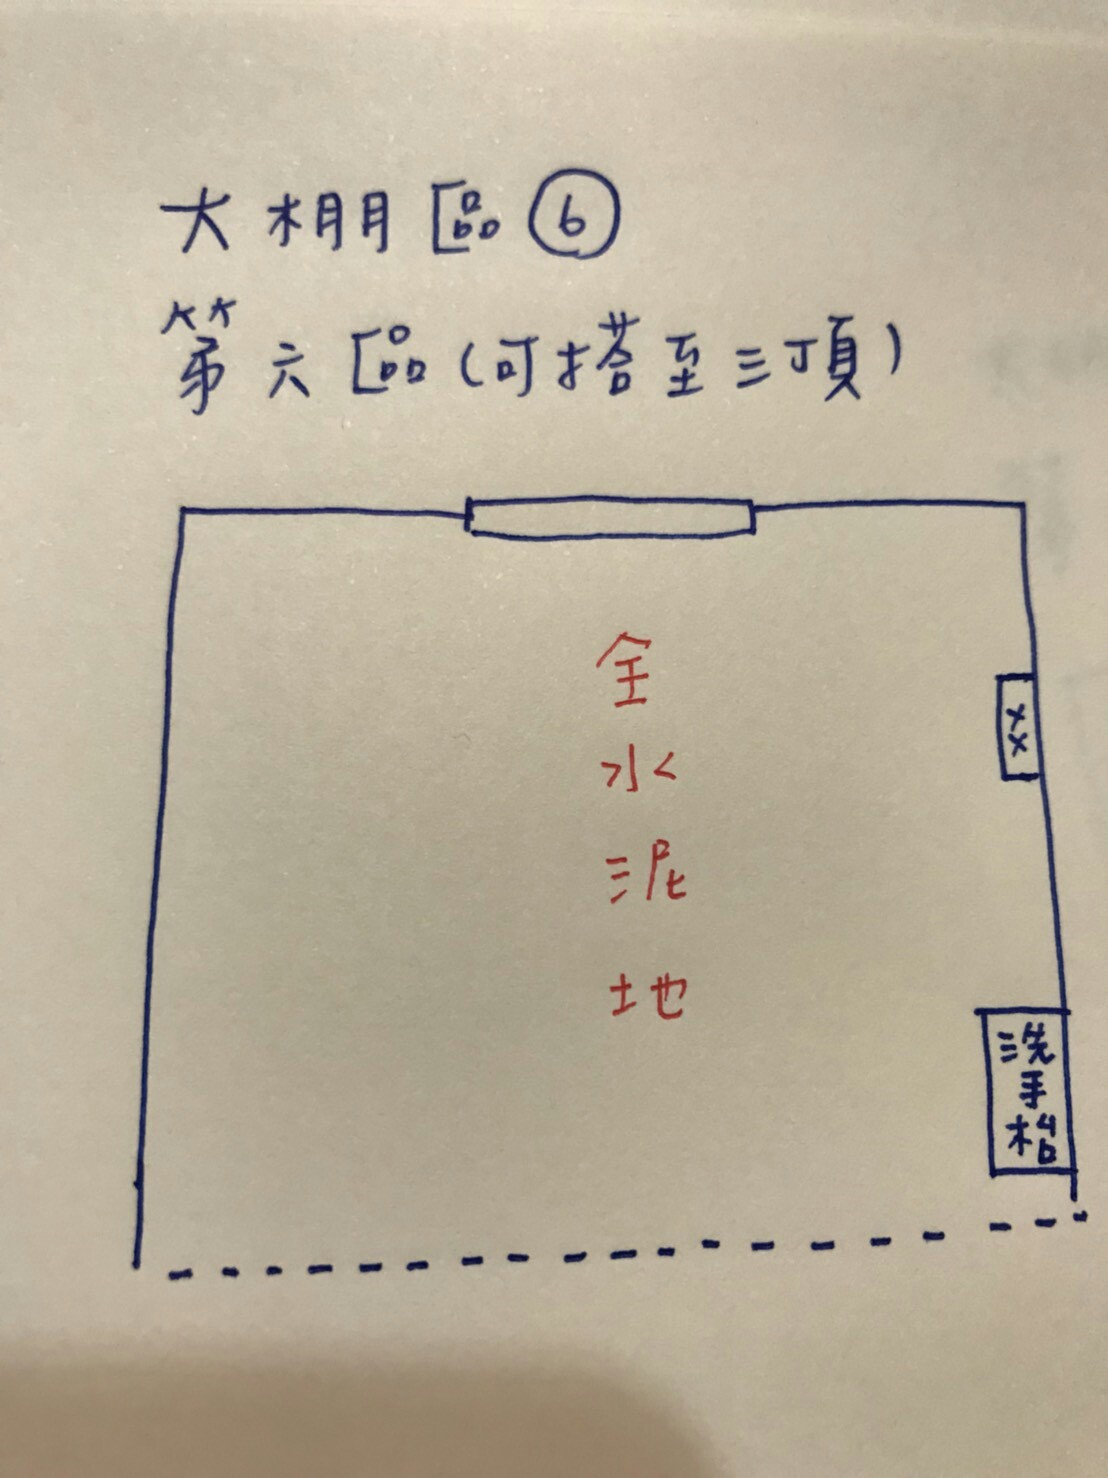 大棚區⑥
第六區(可搭至三頂)
全水泥地
XX
洗手枱